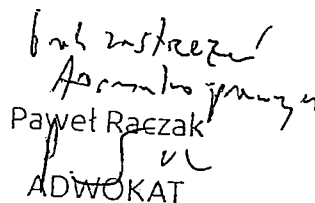 brak zastrzeżeń
formalno prawnych
Paweł Raczak
ADWOKAT